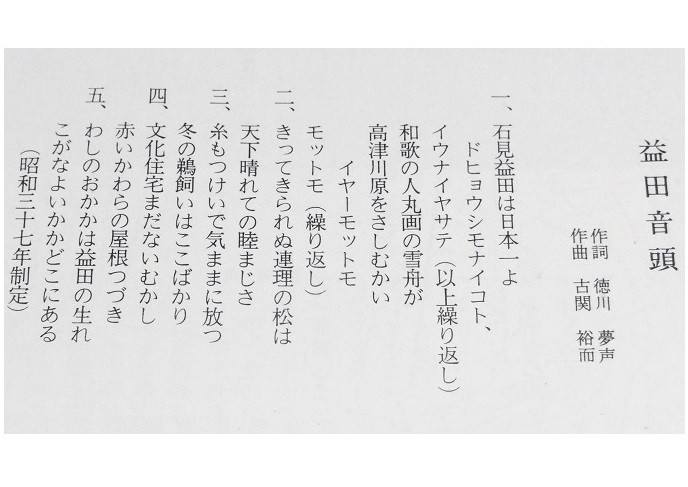 益田音頭
作詞　徳川　夢声
作曲　古関　裕而
一、石見益田は日本一よ
ドヒョウシモナイコト、
イウナイヤサテ（以上繰り返し）
和歌の人丸画の雪舟が
高津川原をさしむかい
イヤーモットモ
モットモ（繰り返し）
二、きってきられぬ連理の松は
天下晴れての睦まじさ
三、糸もつけいで気ままに放つ
冬の鵜飼いはここばかり
四、文化住宅まだないむかし
赤いかわらの屋根つづき
五、わしのおかかは益田の生れ
こがなよいかかどこにある
（昭和三十七年制定）